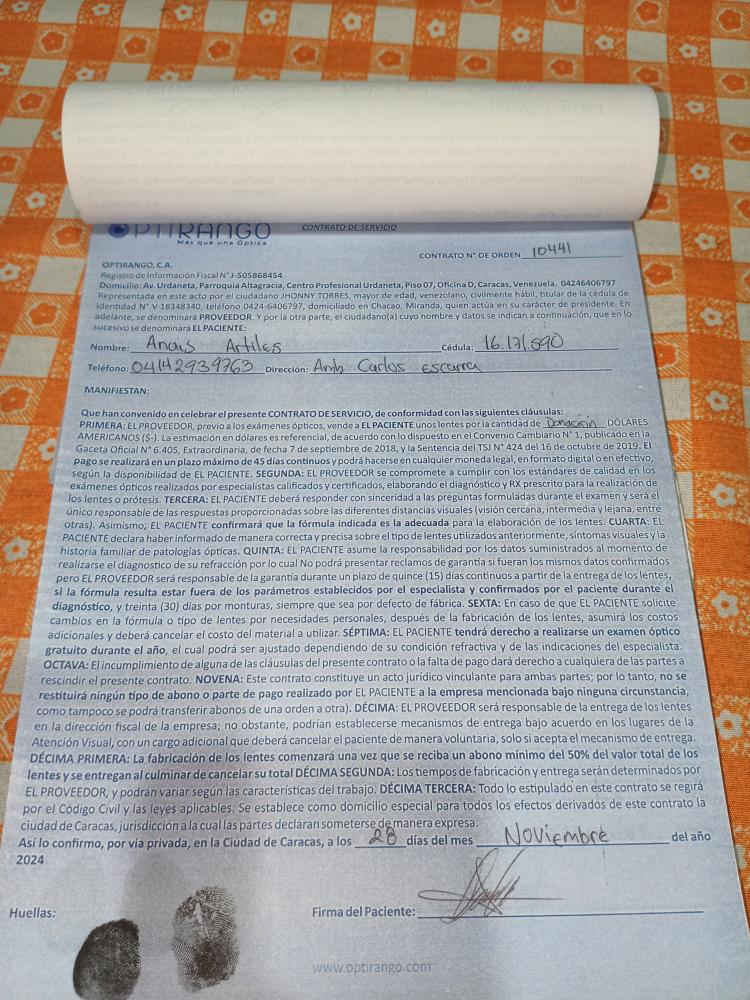 OPTIRANGO
Más que una Óptica
CONTRATO DE SERVICIO
CONTRATO N° DE ORDEN 10441
OPTIRANGO, C.A.
Registro de Información Fiscal N° J-505868454
Domicilio: Av. Urdaneta, Parroquia Altagracia, Centro Profesional Urdaneta, Piso 07, Oficina D, Caracas, Venezuela. 04246406797
Representada en este acto por el ciudadano JHONNY TORRES, mayor de edad, venezolano, civilmente hábil, titular de la cédula de
identidad N° V-18348340, teléfono 0424-6406797, domiciliado en Chacao, Miranda, quien actúa en su carácter de presidente. En
adelante, se denominará PROVEEDOR. Y por la otra parte, el ciudadano(a) cuyo nombre y datos se indican a continuación, que en lo
sucesivo se denominará EL PACIENTE:
Nombre: Anais Artiles Cédula: 16.171.590
Teléfono: 04142939763 Dirección: Amb Carlos escarra
MANIFIESTAN:
Que han convenido en celebrar el presente CONTRATO DE SERVICIO, de conformidad con las siguientes cláusulas:
PRIMERA: EL PROVEEDOR, previo a los exámenes ópticos, vende a EL PACIENTE unos lentes por la cantidad de Donación DÓLARES
AMERICANOS ($-). La estimación en dólares es referencial, de acuerdo con lo dispuesto en el Convenio Cambiario N° 1, publicado en la
Gaceta Oficial N° 6.405, Extraordinaria, de fecha 7 de septiembre de 2018, y la Sentencia del TSJ N° 424 del 16 de octubre de 2019. El
pago se realizará en un plazo máximo de 45 días continuos y podrá hacerse en cualquier moneda legal, en formato digital o en efectivo,
según la disponibilidad de EL PACIENTE. SEGUNDA: EL PROVEEDOR se compromete a cumplir con los estándares de calidad en los
exámenes ópticos realizados por especialistas calificados y certificados, elaborando el diagnóstico y RX prescrito para la realización de
los lentes o prótesis. TERCERA: EL PACIENTE deberá responder con sinceridad a las preguntas formuladas durante el examen y será el
único responsable de las respuestas proporcionadas sobre las diferentes distancias visuales (visión cercana, intermedia y lejana, entre
otras). Asimismo, EL PACIENTE confirmará que la fórmula indicada es la adecuada para la elaboración de los lentes. CUARTA: EL
PACIENTE declara haber informado de manera correcta y precisa sobre el tipo de lentes utilizados anteriormente, síntomas visuales y la
historia familiar de patologías ópticas. QUINTA: EL PACIENTE asume la responsabilidad por los datos suministrados al momento de
realizarse el diagnostico de su refracción por lo cual No podrá presentar reclamos de garantía si fueran los mismos datos confirmados
pero EL PROVEEDOR será responsable de la garantía durante un plazo de quince (15) días continuos a partir de la entrega de los lentes,
si la fórmula resulta estar fuera de los parámetros establecidos por el especialista y confirmados por el paciente durante el
diagnóstico, y treinta (30) días por monturas, siempre que sea por defecto de fábrica. SEXTA: En caso de que EL PACIENTE solicite
cambios en la fórmula o tipo de lentes por necesidades personales, después de la fabricación de los lentes, asumirá los costos
adicionales y deberá cancelar el costo del material a utilizar. SÉPTIMA: EL PACIENTE tendrá derecho a realizarse un examen óptico
gratuito durante el año, el cual podrá ser ajustado dependiendo de su condición refractiva y de las indicaciones del especialista.
OCTAVA: El incumplimiento de alguna de las cláusulas del presente contrato o la falta de pago dará derecho a cualquiera de las partes a
rescindir el presente contrato. NOVENA: Este contrato constituye un acto jurídico vinculante para ambas partes; por lo tanto, no se
restituirá ningún tipo de abono o parte de pago realizado por EL PACIENTE a la empresa mencionada bajo ninguna circunstancia,
como tampoco se podrá transferir abonos de una orden a otra). DÉCIMA: EL PROVEEDOR será responsable de la entrega de los lentes
en la dirección fiscal de la empresa; no obstante, podrían establecerse mecanismos de entrega bajo acuerdo en los lugares de la
Atención Visual, con un cargo adicional que deberá cancelar el paciente de manera voluntaria, solo si acepta el mecanismo de entrega.
DÉCIMA PRIMERA: La fabricación de los lentes comenzará una vez que se reciba un abono mínimo del 50% del valor total de los
lentes y se entregan al culminar de cancelar su total DÉCIMA SEGUNDA: Los tiempos de fabricación y entrega serán determinados por
EL PROVEEDOR, y podrán variar según las características del trabajo. DÉCIMA TERCERA: Todo lo estipulado en este contrato se regirá
por el Código Civil y las leyes aplicables. Se establece como domicilio especial para todos los efectos derivados de este contrato la
ciudad de Caracas, jurisdicción a la cual las partes declaran someterse de manera expresa.
Así lo confirmo, por vía privada, en la Ciudad de Caracas, a los 28 días del mes Noviembre del año
2024
Huellas:
Firma del Paciente:
www.optirango.com